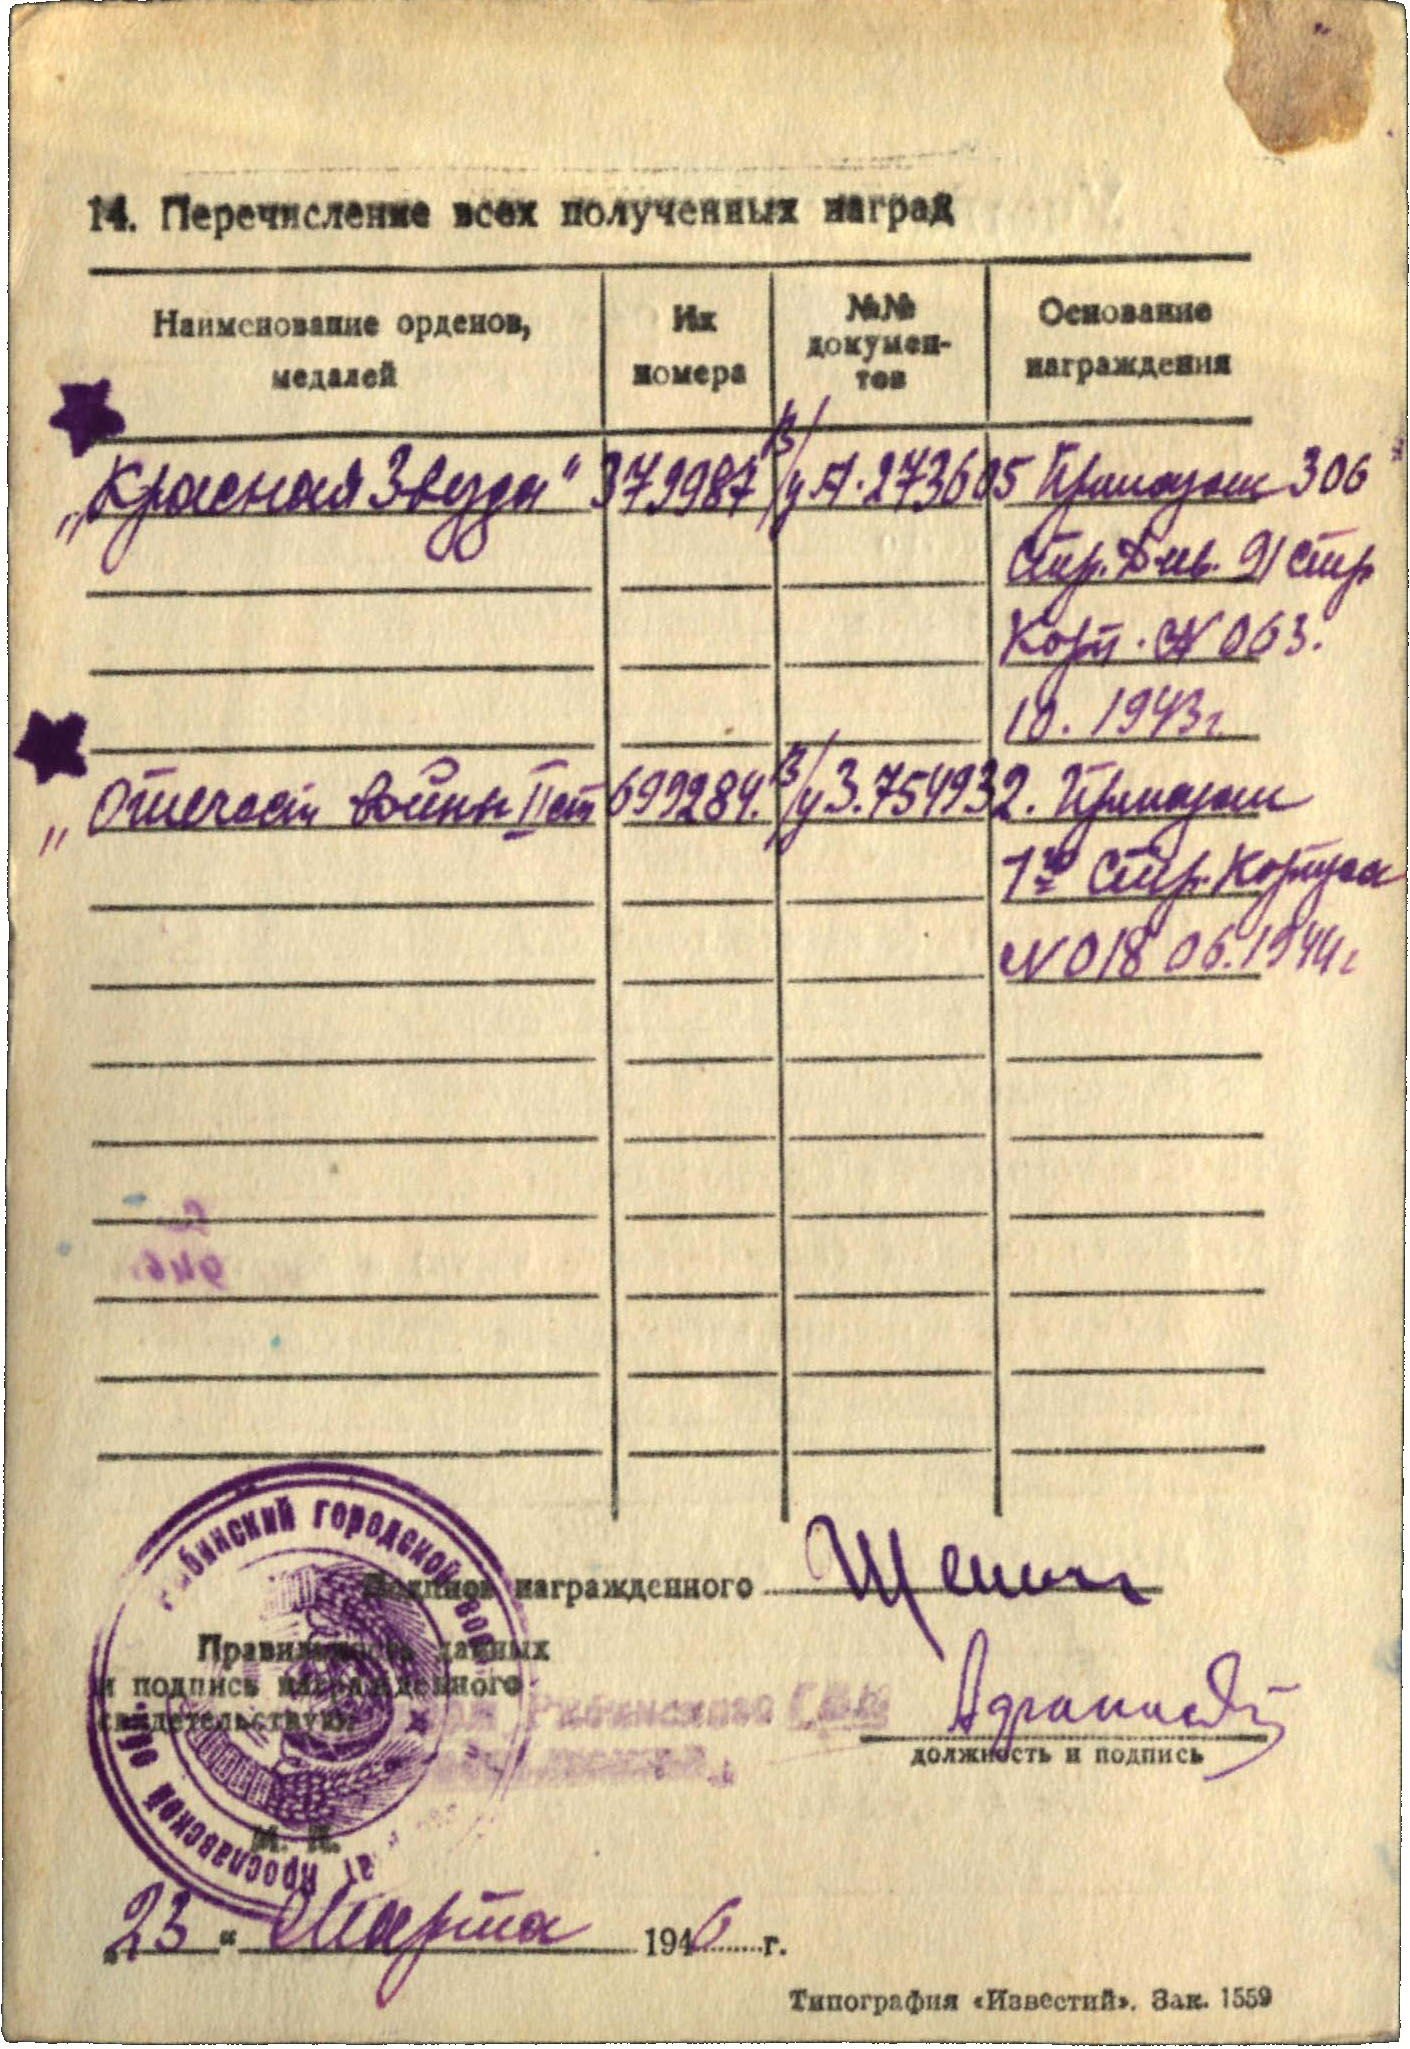 14. Перечисление всех полученных наград
Наименование орденов, медалей
Их номера
№№ докумен-
тов
Основание награждения
„Красная Звезда" 379987 в/у А.273605 Приказом 306
Стр. Див. 91 Стр
Корп. N 063.
10. 1943г.
„Отечеств войны II ст 699284. в/у З.754932. Приказом
1го Стр. Корпуса
N 018 06.1944г
Подпись награжденного
Правильность данных
и подпись награжденного
свидетельствую.
Рыбинского ГВК
должность и подпись
Рыбинский городской вое
Ярославской об.
М. П.
„23" Марта 1946 г.
Типография «Известий». Зак. 1559